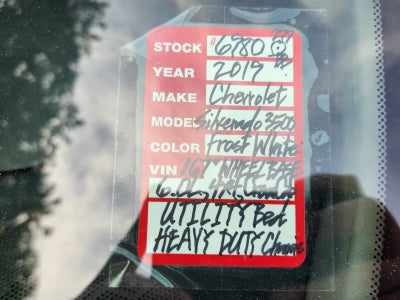 STOCK #6980
YEAR 2019
MAKE Chevrolet
MODEL Silverado 3500
COLOR Frost White
VIN 167" WHEELBASE
6.0L
UTILITY Bed
HEAVY DUTY Chassis